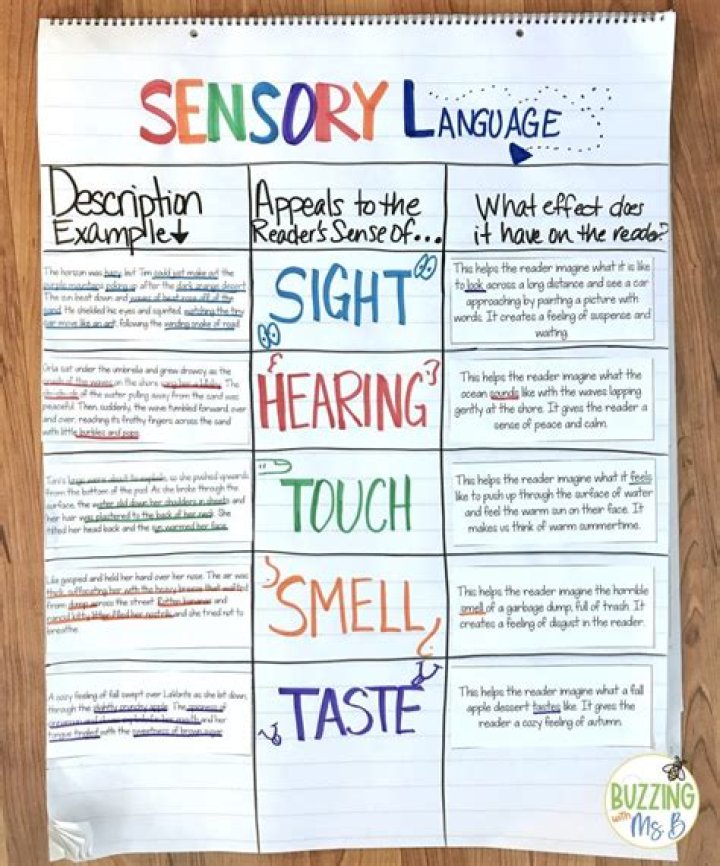 SENSORY LANGUAGE
Description
Example
Appeals to the
Reader's Sense of...
What effect does
it have on the reader?
The horizon was hazy, but Tim could just make out the
purple mountains poking up after the dark orange desert.
The sun beat down and waves of heat rose off of the
sand. He shielded his eyes and squinted, watching the tiny
car move like an ant, following the winding snake of road.
SIGHT
This helps the reader imagine what it is like
to look across a long distance and see a car
approaching by painting a picture with
words. It creates a feeling of suspense and
waiting.
Orla sat under the umbrella and grew drowsy as the
of the waves on the shore sang her a lullaby. The
of the water pulling away from the sand was
peaceful. Then, suddenly, the wave tumbled forward, over
and over, reaching its frothy fingers across the sand
with little burbles and pops.
HEARING
This helps the reader imagine what the
ocean sounds like with the waves lapping
gently at the shore. It gives the reader a
sense of peace and calm.
lungs were about to explode, so she pushed upwards
from the bottom of the pool. As she broke through the
surface, the water slid down her shoulders in sheets and
her hair was plastered to the back of her neck. She
tilted her head back and the sun warmed her face.
TOUCH
This helps the reader imagine what it feels
like to push up through the surface of water
and feel the warm sun on their face. It
makes us think of warm summertime.
gasped and held her hand over her nose. The air was
thick, suffocating her with the heavy breeze that wafted
from dump across the street. Rotten bananas and
kitty litter filled her nostrils and she tried not to
breathe.
SMELL
This helps the reader imagine the horrible
smell of a garbage dump, full of trash. It
creates a feeling of disgust in the reader.
A cozy feeling of fall swept over LaVonte as she bit down,
through the slightly crunchy apple. The spiciness of
cinnamon and cloves exploded in her mouth and her
tongue tingled with the sweetness of brown sugar.
TASTE
This helps the reader imagine what a fall
apple dessert tastes like. It gives the
reader a cozy feeling of autumn.
BUZZING
with
Ms. B